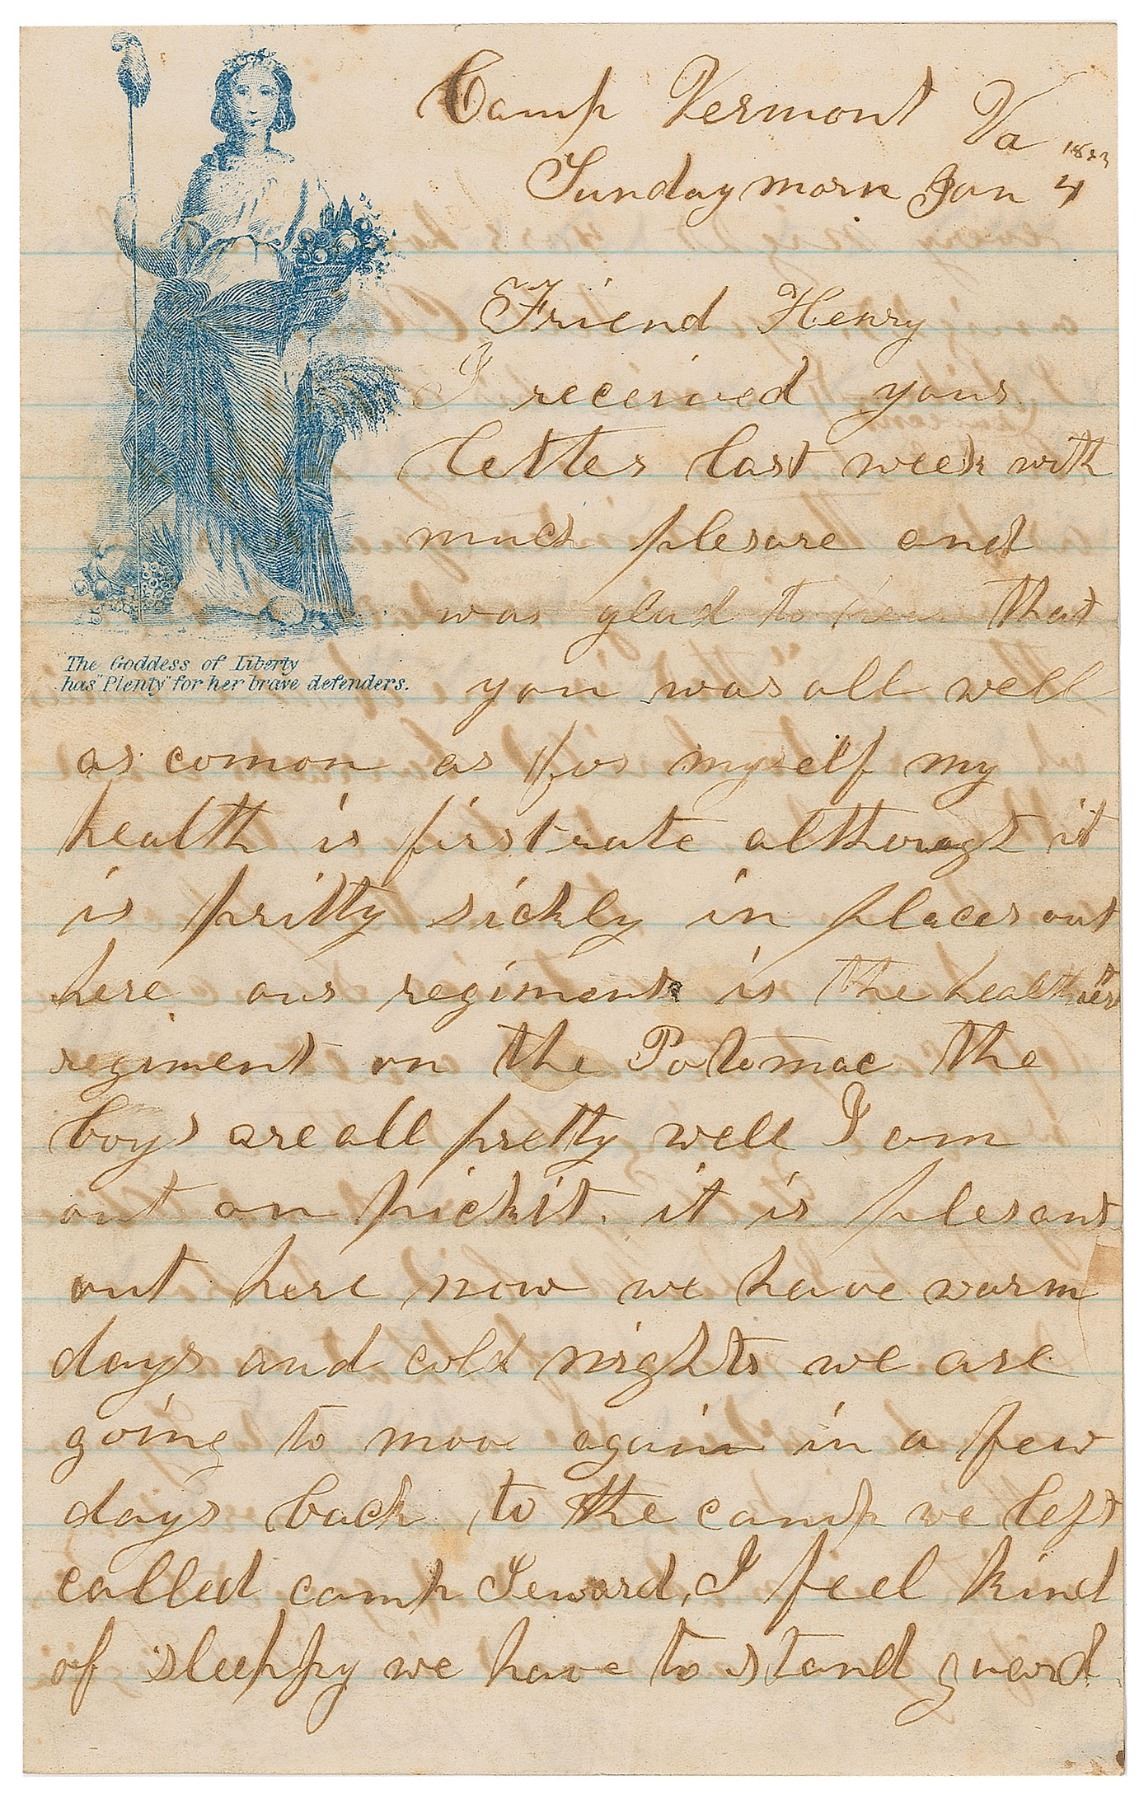 Camp Vermont Va
Sunday morn Jan 4
Friend Henry
I received yours
letter last week with
much plesure and
was glad to hear that
The Goddess of Liberty
has "Plenty" for her brave defenders.
you was all well
as comon as for myself my
health is first rate although it
is pritty sickly in places out
here our regiment is the healthiest
regiment on the Potomac the
boys are all pretty well I am
out on pickit. it is plesant
out here now we have warm
days and cold nights we are
going to move again in a few
days back to the camp we left
called camp Seward, I feel kind
of sleeppy we have to stand guard